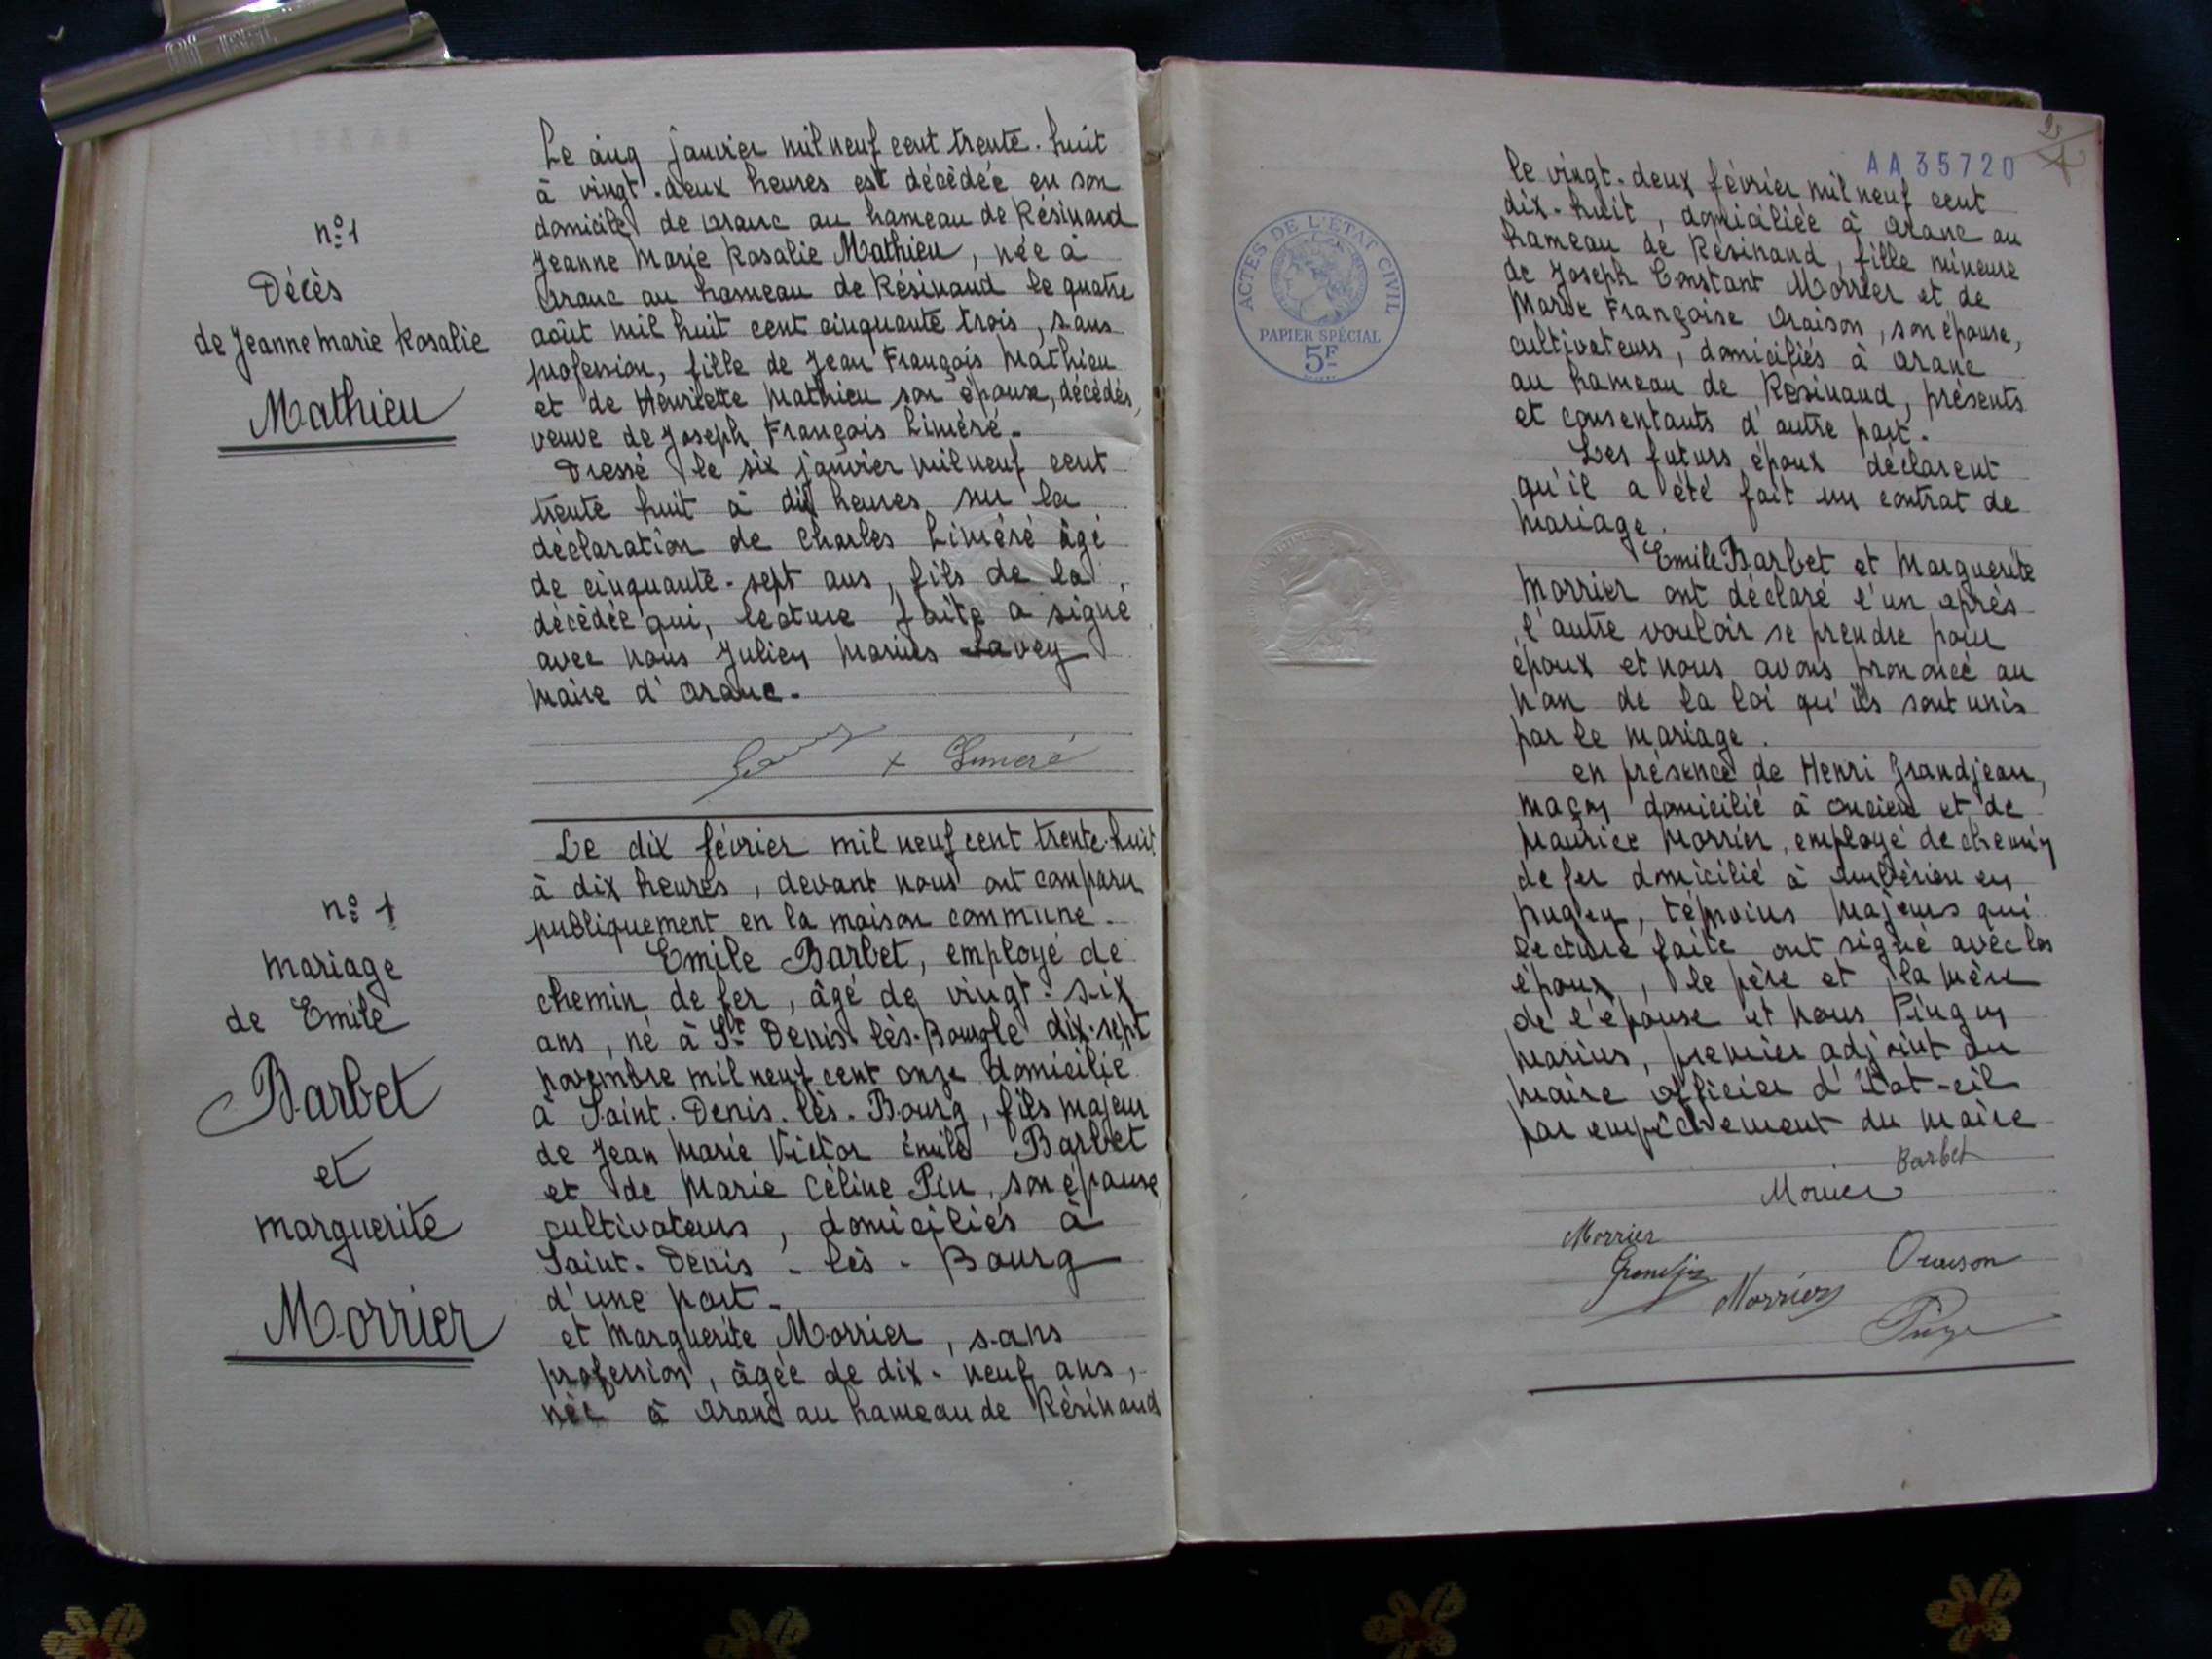 n° 1
Décès
de Jeanne marie Rosalie
Mathieu
Le cinq janvier mil neuf cent trente-huit
à vingt-deux heures est décédée en son
domicile de Aranc au hameau de Résinand
Jeanne Marie Rosalie Mathieu, née à
Aranc au hameau de Résinand le quatre
août mil huit cent cinquante trois, sans
profession, fille de Jean François Mathieu
et de Henriette Mathieu son épouse, décédés,
veuve de Joseph François Liméré.
Dressé le six janvier mil neuf cent
trente huit à dix heures sur la
déclaration de Charles Liméré âgé
de cinquante-sept ans, fils de la
décédée qui, lecture faite a signé
avec nous Julien Marius Savey
maire d'Aranc.
+ Limeré
n° 1
mariage
de Emile
Barbet
et
marguerite
Morrier
Le dix février mil neuf cent trente-huit
à dix heures, devant nous ont comparu
publiquement en la maison commune.
Emile Barbet, employé de
chemin de fer, âgé de vingt-six
ans, né à St Denis-lès-Bourg le dix-sept
novembre mil neuf cent onze domicilié
à Saint-Denis-lès-Bourg, fils majeur
de Jean Marie Victor émile Barbet
et de Marie Céline Pin, son épouse
cultivateurs, domiciliés à
Saint-Denis-lès-Bourg
d'une part.
et Marguerite Morrier, sans
profession, âgée de dix-neuf ans,
née à Aranc au hameau de Résinand
AA 35720
ACTES DE L'ÉTAT CIVIL
PAPIER SPÉCIAL
5F
le vingt-deux février mil neuf cent
dix-huit, domiciliée à Aranc au
hameau de Résinand, fille mineure
de Joseph Constant Morrier et de
Marie Françoise Oraison, son épouse,
cultivateurs, domiciliés à Aranc
au hameau de Résinand, présents
et consentants d'autre part.
Les futurs époux déclarent
qu'il a été fait un contrat de
mariage.
Emile Barbet et Marguerite
Morrier ont déclaré l'un après
l'autre vouloir se prendre pour
époux et nous avons prononcé au
nom de la loi qu'ils sont unis
par le mariage.
en présence de Henri Grandjean,
maçon domicilié à Oncieu et de
Maurice Morrier, employé de chemin
de fer domicilié à Ambérieu en
Bugey, témoins majeurs qui
lecture faite ont signé avec les
époux, le père et la mère
de l'épouse et nous
Marius, premier adjoint au
maire officier d'état-cil
par empêchement du maire
Barbet
Morrier
Morrier
Oraison
Morrier